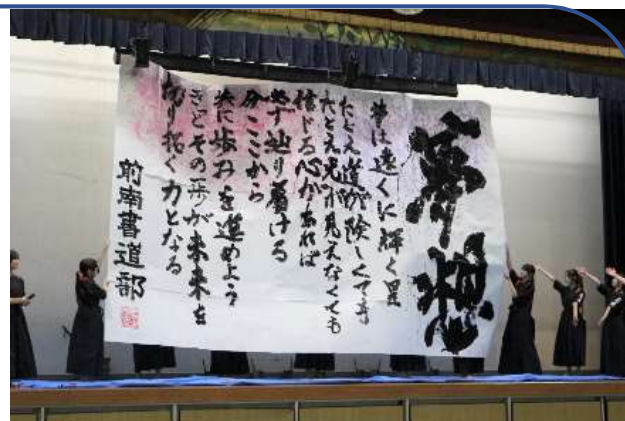 夢は遠くに輝く星
たとえ道が険しくても
たとえ光が見えなくても
信じる心があれば
必ず辿り着ける
今ここから
共に歩みを進めよう
きっとその一歩が未来を
切り拓く力となる
前南書道部